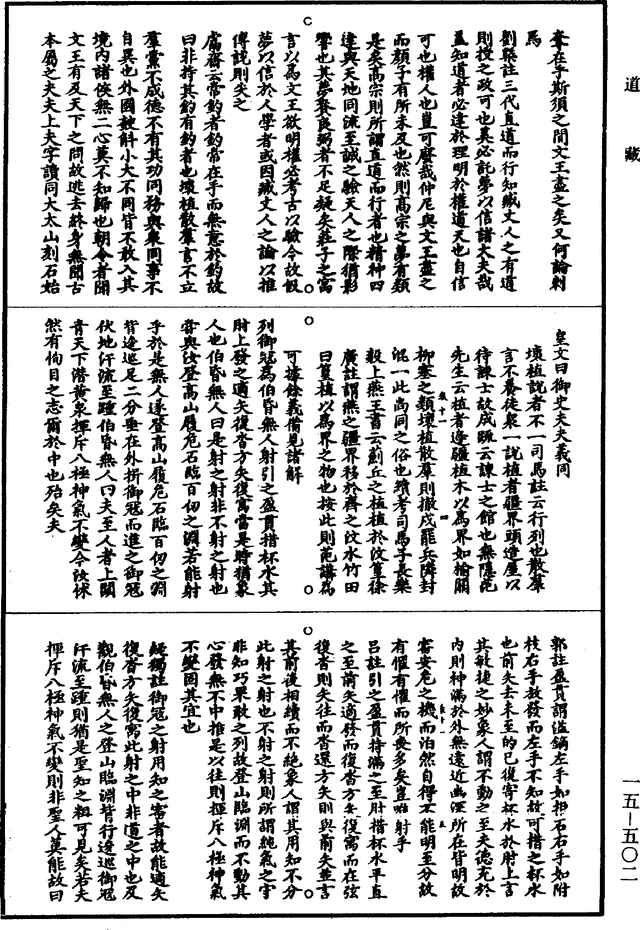 道藏
奪在乎斯須之間文王盡之矣又何論刺
焉
劉槩註三代直道而行知臧丈人之有道
則授之政可也奚必託夢以信諸大夫哉
蓋知道者必達於理明於權道天也自信
可也權人也豈可廢哉仲尼與文王盡之
而顏子有所未及也然則高宗之夢有類
是矣高宗則所謂直道而行者也精神四
達與天地同流至誠之驗天人之際猶影
響也其夢賚良弼者不足疑矣莊子之寓
言以為文王欲明權必考古以驗今故假
夢以信於人學者或因臧丈人之論以推
傅說則失之
虜齋云常釣者釣常在手而無意於釣故
曰非持其釣有釣者也壞植散羣言不立
羣黨不成德不有其功同務與衆同事不
自異也外國斔斛小大不同皆不敢入其
境內諸侯無二心莫不知歸也朝令者聞
文王有及天下之問故逃去終身無聞古
本屬之夫夫上夫字讀同大太山刻石始
皇文曰御史夫夫義同
壞植說者不一司馬註云行列也散羣
言不養徒衆一說植者疆界頭造屋以
待諫士故成疏云諫士之館也無隱范
先生云植者邊疆植木以為界如榆關
柳塞之類壞植散羣則撤戍罷兵隣封
混一此尚同之俗也續考司馬子長樂
毅上燕王書云薊丘之植植於汶篁徐
廣註謂燕之疆界移於齊之汶水竹田
曰篁植以為界之物也按此則范講為
可據餘義備見諸解
列御寇為伯昏無人射引之盈貫措杯水其
肘上發之適矢復沓方矢復寓當是時猶象
人也伯昏無人曰是射之射非不射之射也
嘗與汝登高山履危石臨百仞之淵若能射
乎於是無人遂登高山履危石臨百仞之淵
背逡巡足二分垂在外揖御寇而進之御寇
伏地汗流至踵伯昏無人曰夫至人者上闚
青天下潛黃泉揮斥八極神氣不變今汝怵
然有恂目之志爾於中也殆矣夫
郭註盈貫謂溢鏑左手如拒石右手如附
枝右手放發而左手不知故可措之杯水
也前矢去未至的已復寄杯水於肘上言
其敏捷之妙象人謂不動之至夫德充於
內則神滿於外無遠近幽深所在皆明故
審安危之機而泊然自得不能明至分故
有懼有懼而所喪多矣豈唯射乎
呂註引之盈貫持滿之至肘措杯水平直
之至前矢適發而復沓方矢復寓而在弦
復沓則矢往而沓還方矢則與前矢並言
其前後相續而不絶象人謂其用知不分
此射之射也不射之射則所謂純氣之守
非知巧果敢之列故登山臨淵而不動其
心發無不中推是以往則揮斥八極神氣
不變固其宜也
疑獨註御寇之射用知之審者故能適矢
復沓方矢復寓此射之中非道之中也及
觀伯昏無人之登山臨淵背行逡巡御寇
汗流至踵則猶是聖知之粗可見矣若夫
揮斥八極神氣不變則非聖人莫能故曰
一五—五〇二